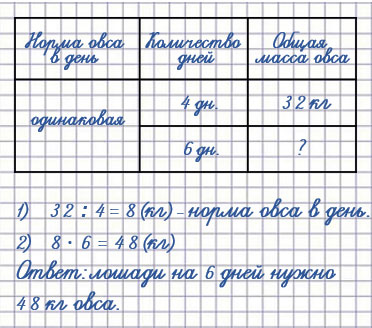 Норма овса в день
Количество дней
Общая масса овса
одинаковая
4 дн.
32 кг
6 дн.
?
1) 32 : 4 = 8 (кг) – норма овса в день.
2) 8 · 6 = 48 (кг)
Ответ: лошади на 6 дней нужно
48 кг овса.